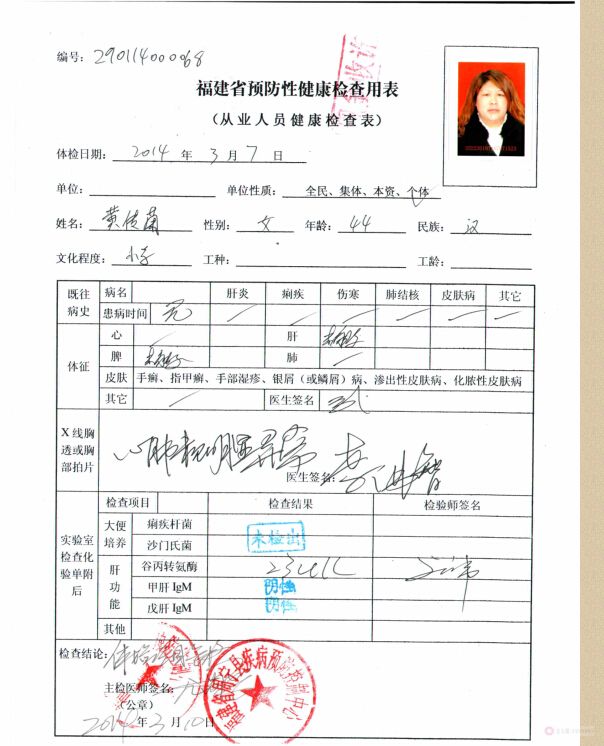 编号：290114000068
福建省预防性健康检查用表
（从业人员健康检查表）
体检日期： 2014 年 3 月 7 日
单位： 单位性质： 全民、集体、本资、个体
姓名： 黄 性别： 女 年龄： 44 民族： 汉
文化程度： 小学 工种： 工龄：
既往病史 病名 肝炎 痢疾 伤寒 肺结核 皮肤病 其它
患病时间 无
体征 心 肝
脾 肺
皮肤 手癣、指甲癣、手部湿疹、银屑（或鳞屑）病、渗出性皮肤病、化脓性皮肤病
其它 医生签名
X 线胸透或胸部拍片 心肺 医生签名：
检查项目 检查结果 检验师签名
实验室检查化验单附后 大便培养 痢疾杆菌 未检出
沙门氏菌
肝功能 谷丙转氨酶
甲肝 IgM 阴性
戊肝 IgM 阴性
其他
检查结论：
主检医师签名：
（公章）
2014 年 3 月 10 日
福建省周宁县疾病预防控制中心